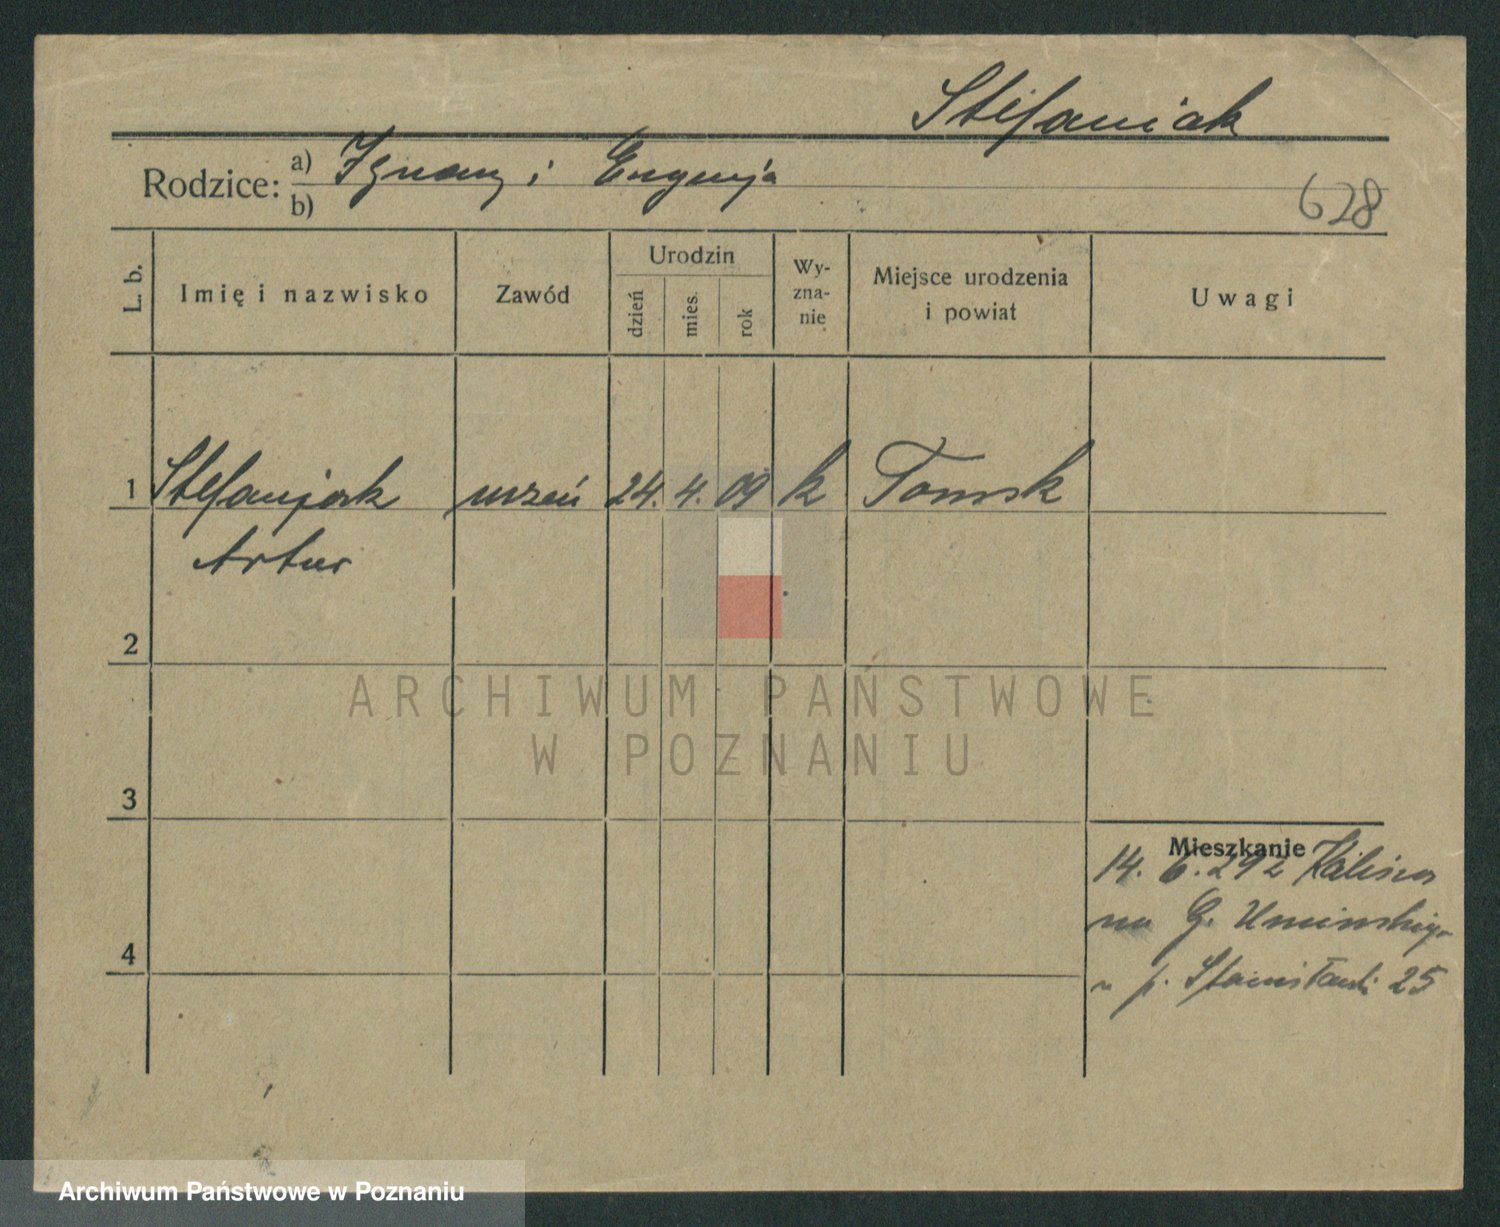 Stefaniak
Rodzice: a) Ignacy i Eugenja
b)
628
L. b.
Imię i nazwisko
Zawód
Urodzin
dzień
mies.
rok
Wy-
zna-
nie
Miejsce urodzenia
i powiat
Uwagi
1 Stefanjak uczeń 24. 4. 09 k Tomsk
Artur
2
ARCHIWUM PAŃSTWOWE
W POZNANIU
3
Mieszkanie
14. 6. 29 z Kalisza
4
na G. Umińskiego
p. 25
Archiwum Państwowe w Poznaniu